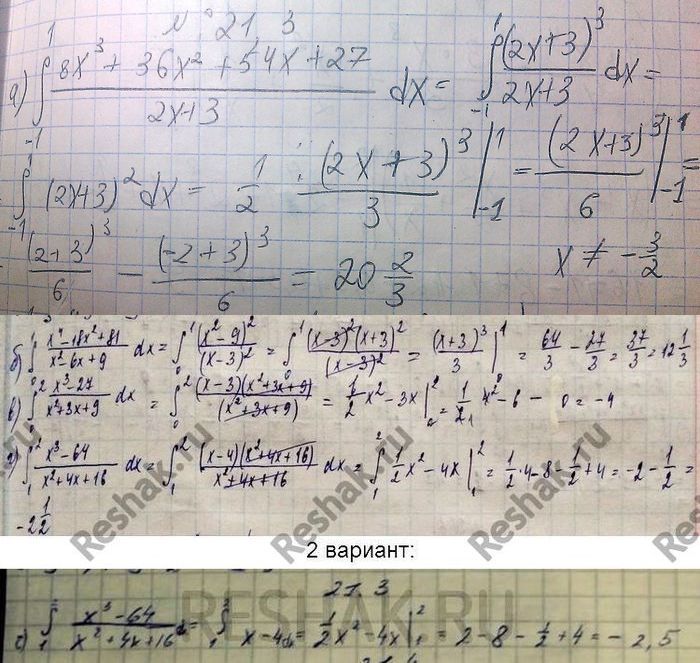 № 21 3
а) ∫₋₁¹ (8x³ + 36x² + 54x + 27)/(2x+3) dx = ∫₋₁¹ (2x+3)³/(2x+3) dx =
∫₋₁¹ (2x+3)² dx = 1/2 · (2x+3)³/3 |₋₁¹ = (2x+3)³/6 |₋₁¹ =
(2+3)³/6 − (-2+3)³/6 = 20 2/3 x ≠ -3/2
б) ∫₀¹ (x⁴-18x²+81)/(x²-6x+9) dx = ∫₀¹ (x²-9)²/(x-3)² = ∫₀¹ (x-3)²(x+3)²/(x-3)² = (x+3)³/3 |₀¹ = 64/3 − 27/3 = 37/3 = 12 1/3
в) ∫₀² (x³-27)/(x²+3x+9) dx = ∫₀² (x-3)(x²+3x+9)/(x²+3x+9) = 1/2 x² − 3x |₀² = 1/2 · 4 − 6 − 0 = -4
г) ∫₁² (x³-64)/(x²+4x+16) dx = ∫₁² (x-4)(x²+4x+16)/(x²+4x+16) dx = ∫₁² 1/2 x² − 4x |₁² = 1/2 · 4 − 8 − 1/2 + 4 = -2 − 1/2 =
-2 1/2
Reshak.ru Reshak.ru Reshak.ru
2 вариант:
21.3
RESHAK.RU
∫₁ (x³-64)/(x²+4x+16) dx = ∫₁ x-4 dx = 1/2 x² − 4x |₁² = 2 − 8 − 1/2 + 4 = − 2,5